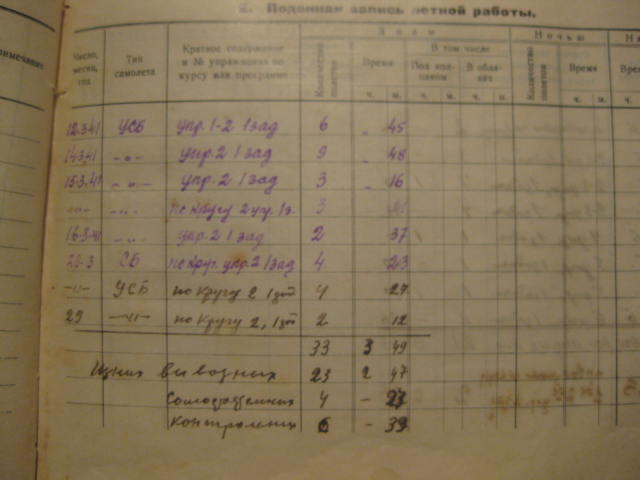 2. Поденная запись летной работы.
Днем
Ночью
Число, месяц, год
Тип самолета
Краткое содержание и № упражнения по курсу или программе
Количество полетов
Время
В том числе
Под колпаком
В облаках
Количество полетов
Время
ч. м. ч. м. ч. м. ч. м.
12.3.41 УСБ упр. 1-2 1 зад 6 - 45
14.3.41 -"- упр. 2 1 зад 9 - 48
15.3.41 -"- упр. 2 1 зад 3 - 16
-"- -"- по кругу 2 упр. 1 з. 3
16-3-41 -"- упр. 2 1 зад 2 37
20-3 СБ по круг. упр. 2 1 зад 4 23
-"- УСБ по кругу 2 1 зад 4 27
29 -"- по кругу 2, 1 зад 2 12
33 3 49
Из них вывозных 23 2 47
Самостоятельных 4 - 23
Контрольных 6 - 39